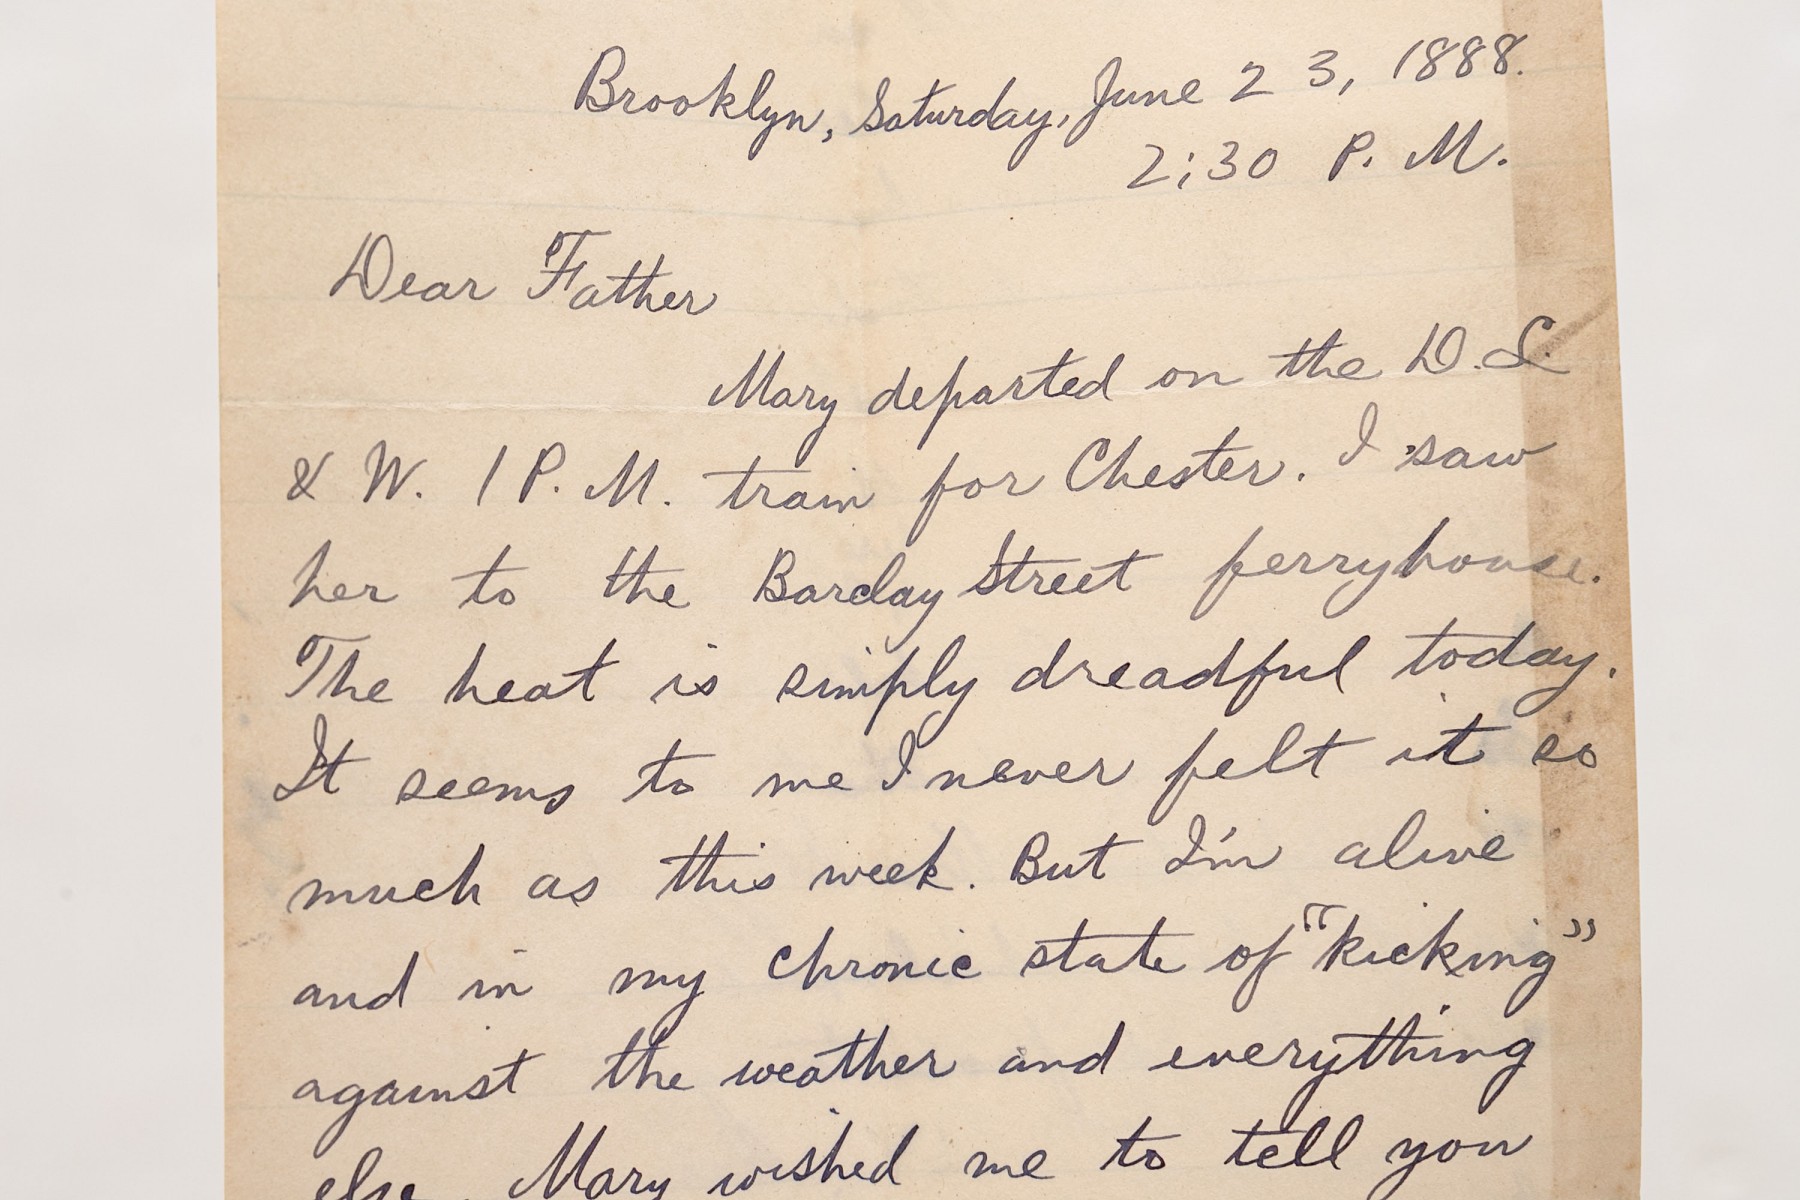 Brooklyn, Saturday, June 23, 1888.
2:30 P. M.
Dear Father
Mary departed on the D. L.
& W. 1 P. M. train for Chester. I saw
her to the Barclay Street ferryhouse.
The heat is simply dreadful today.
It seems to me I never felt it so
much as this week. But I'm alive
and in my chronic state of "kicking"
against the weather and everything
else. Mary wished me to tell you